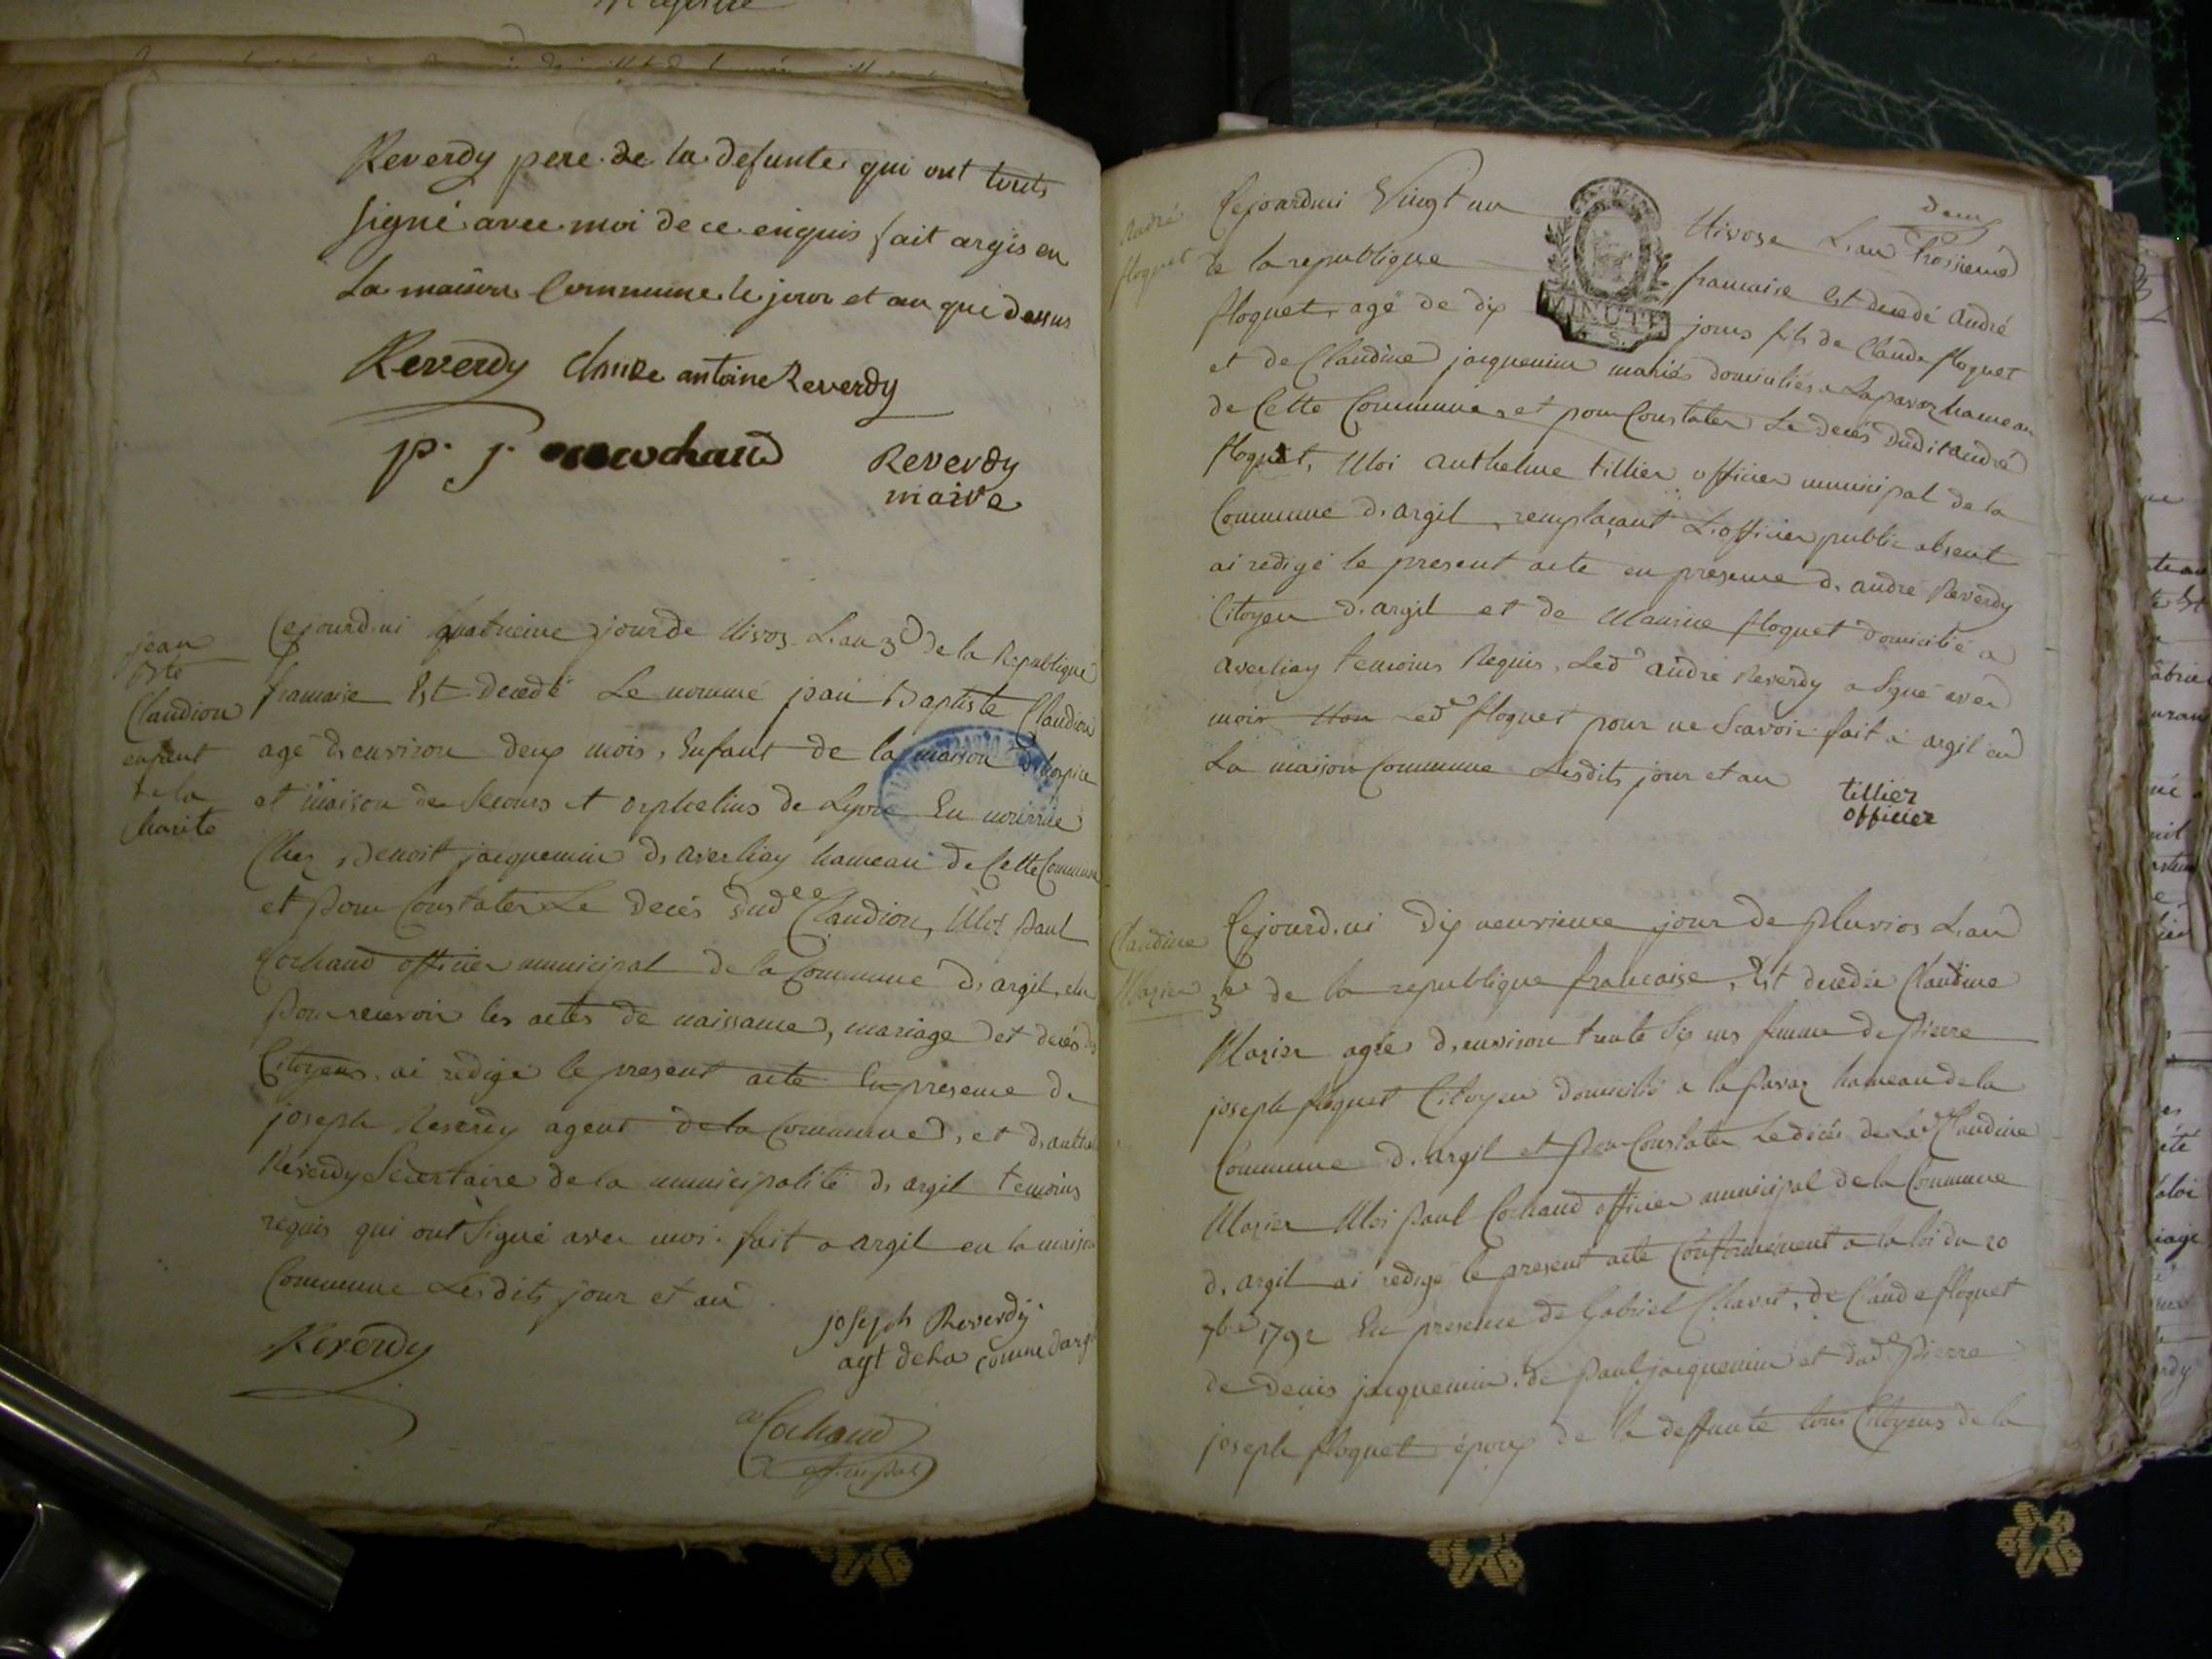 Reverdy pere de la defunte qui ont touts
signé avec moi de ce enquis fait argis en
La maison Commune le jour et an que dessus
Reverdy Claude antoine Reverdy
p. j. cochaud
Reverdy
maire
jean
Bte
Claudion
enfant
de la
charité
Cejourd.ui quatrieme jour de Nivos L.an 3e de la Republique
francaise Est Decedé Le nommé jean Baptiste Claudion
agé d.environ deux mois, Enfant de la maison d.hospice
et maison de secours et orphelins de Lyon En nourrice
Chez Benoit jacquemin d. averliay hameau de Cette Commune
et pour Constater Le decés dud Claudion, Moi Paul
Cochaud officier municipal de la Commune d. argil, elu
pour recevoir les actes de naissance, mariage et decés des
Citoyens, ai redigé le present acte En presence de
joseph Reverdy agent de la Commune, et d.
Reverdy Secretaire de la municipalité d. argil temoins
requis qui ont signé avec moi. fait a argil en la maison
Commune Lesdits jour et an
Reverdy
joseph Reverdy
agt de la comune dargil
Cochaud
off. mpal
deux
MINUTE
André
floquet
Cejourdui Vingt un Nivose L.an Troisieme
de la republique francaise Est decedé André
floquet, agé de dix jours fils de Claude floquet
et de Claudine jacquemin mariés domiciliés a Lapavaz hameau
de Cette Commune, et pour Constater Le decés dudit andré
floquet, Moi anthelme tillier officier municipal de la
Commune d. argil, remplaçant L.officier public absent
ai redigé le present acte en presence d. andré Reverdy
Citoyen d. argil et de Maurice floquet domicilié a
averliay temoins Requis, Led andré Reverdy a signé avec
moi Non Led floquet pour ne Scavoir fait a argil en
La maison Commune Lesdits jour et an
tillier
officier
Claudine
Mazier
Cejourd.ui dix neuvieme jour de pluvios L.an
3e de la republique francaise, Est decedée Claudine
Mazier agée d.environ trente six ans femme de Pierre
joseph floquet Citoyen domicilié a la Pavaz hameau de la
Commune d. argil et pour Constater Le decés de Lad Claudine
Mazier Moi Paul Cochaud officier municipal de la Commune
d. argil ai redigé le present acte Conformement a la loi du 20
7bre 1792 En presence de Gabriel Chavet, de Claude floquet
de denis jacquemin, de Paul jacquemin et dud Pierre
joseph floquet époux de la deffunte tous Citoyens de la